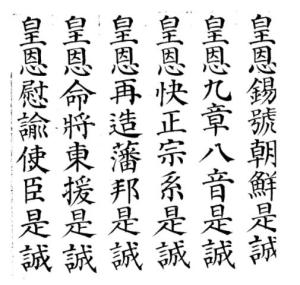 皇恩錫號朝鮮是誠
皇恩九章八音是誠
皇恩快正宗系是誠
皇恩再造藩邦是誠
皇恩命將東援是誠
皇恩慰諭使臣是誠